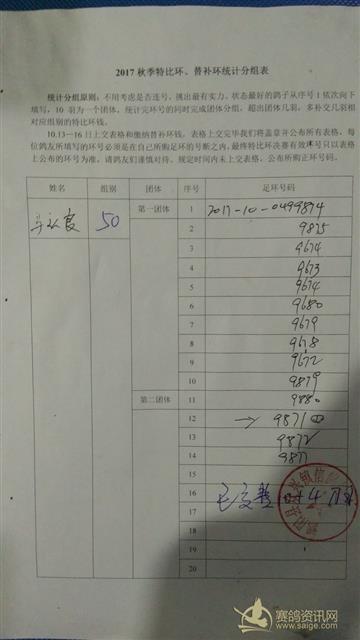 2017 秋季特比环、替补环统计分组表
统计分组原则：不用考虑是否连号，挑出最有实力、状态最好的鸽子从序号 1 依次向下
填写，10 羽为一个团体，统计完环号的同时完成团体分组，超出团体几羽，多补交几羽相
对应组别的特比环钱。
10.13—16 日上交表格和缴纳替补环钱，表格上交完毕我们将盖章并公布所有表格，每
位鸽友所填写的环号必须是在自己所购足环的号断之内，最终特比环决赛有效环号只以表格
上公布的环号为准，请鸽友们谨慎对待。规定时间内未上交表格，公布所购正环号码。
姓名 组别 团体 序号 足环号码
50 第一团体 1 2017-10-0499874
2 9875
3 9674
4 9673
5 9674
6 9680
7 9679
8 9678
9 9672
10 9879
第二团体 11 9880
12 → 9871
13 9872
14 9877
15
16
17
18
19
20
赛鸽资讯网
www.saige.com